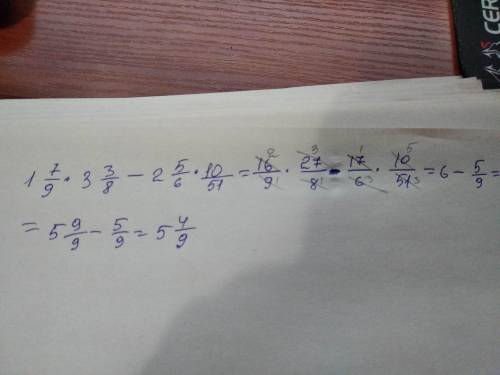 CER
1 7/9 · 3 3/8 − 2 5/6 · 10/51 = 16/9 · 27/8 - 17/6 · 10/51 = 6 − 5/9 =
= 5 9/9 − 5/9 = 5 4/9